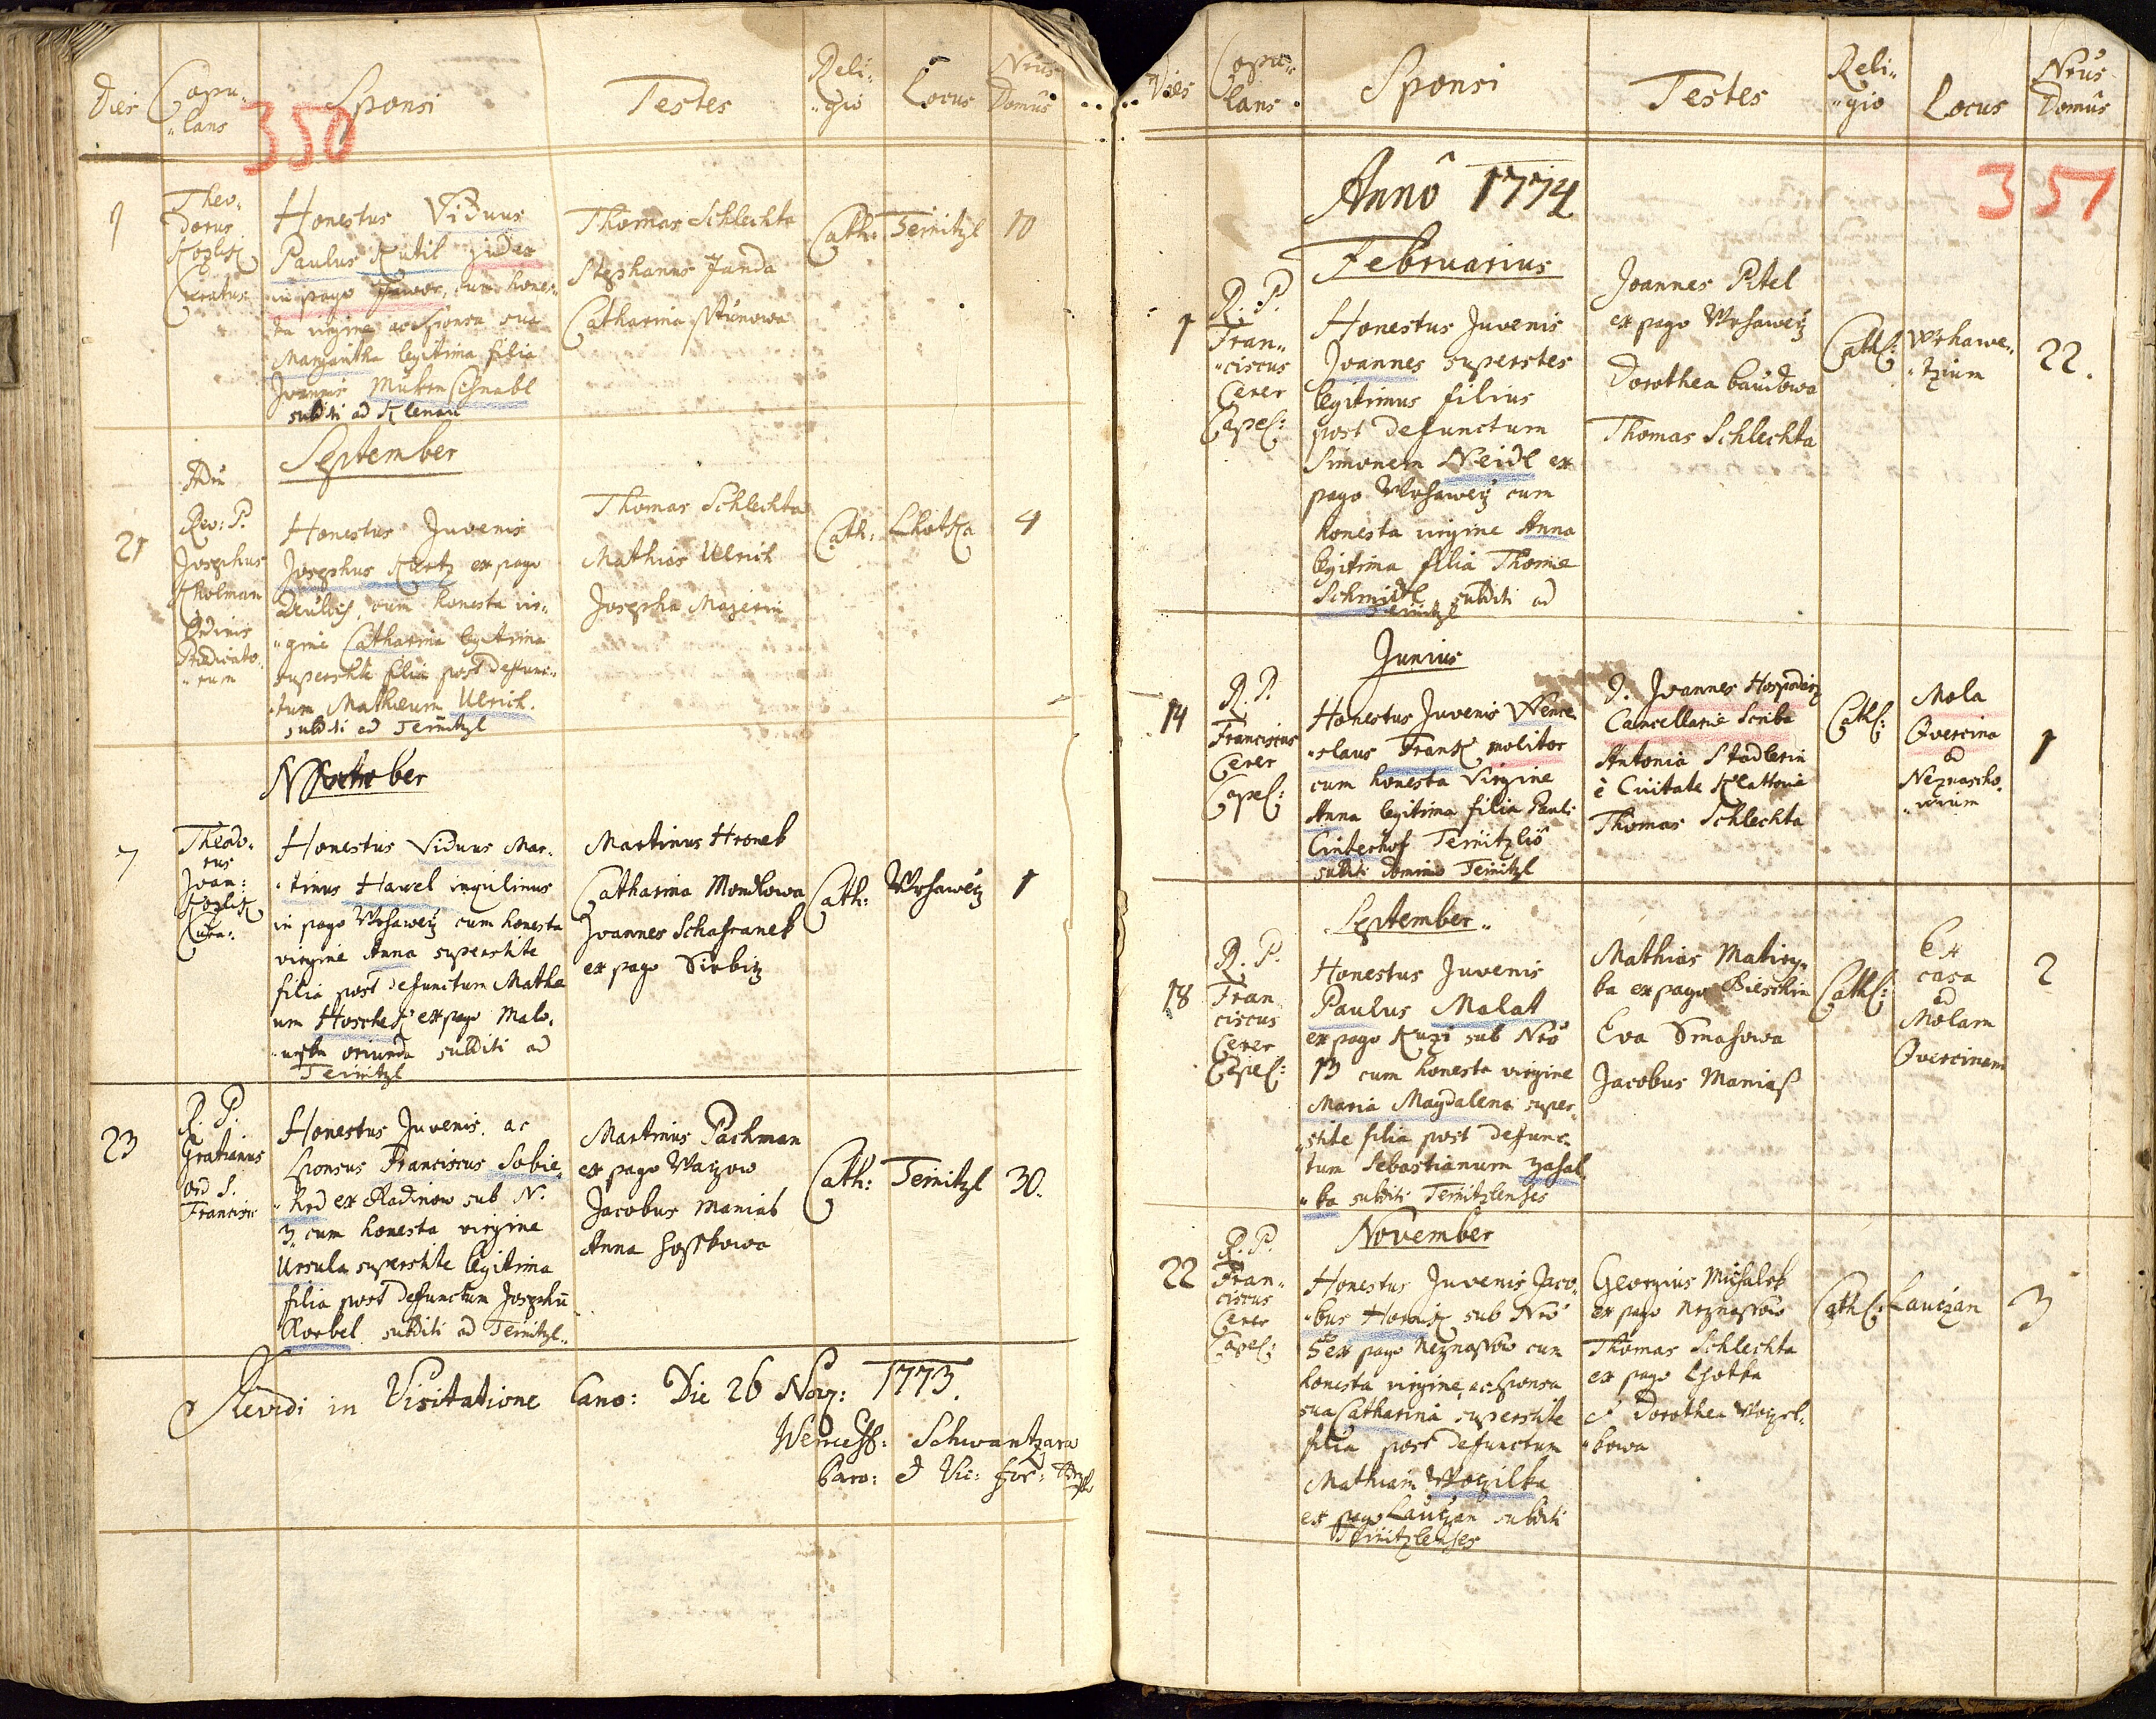 Dies
Copu-
"lans
350
Sponsi
Testes
Reli-
"gio
Locus
Nrus
Domûs
1
Theo-
dorus
Kozlik
Curatus
Honestus Viduus
Paulus Kutil Judex
in pago Jawor, cum hones-
ta virgine ac Sponsa sua
Margaritha legitima filia
Joannis
subditi ad Klenau
Thomas Schlechta
Stephanus Janda
Catharina
Cath:
Teinitzl
10
September
21
Adm
Rev: P.
Josephus
Kholman
Ordinis
Prædicato-
"rum
Honestus Juvenis
Josephus Kuntz ex pago
cum honesta vir-
"gine Catharina legitima
superstite filia post defunc-
tum Mathæum Ulrich.
subditi ad Teinitzl
Thomas Schlechta
Mathias Ulrich
Josepha Majerin
Cath:
Lhotka
4
November
7
Theodo-
rus
Joan:
Kozlik
Cura:
Honestus Viduus Mar-
"tinus Hawel inquilinus
in pago Wrhawetz cum honesta
virgine Anna superstite
filia post defunctum Mathæ
um Hoschek ex pago Malo-
oriunda subditi ad
Teinitzl
Martinus Hronek
Catharina Mondlowa
Joannes Schafranek
ex pago Sirbitz
Cath:
Wrhawetz
1
23
R. P.
Gratianus
Ord S.
Francisci
Honestus Juvenis, ac
Sponsus Franciscus Sobie-
"Krd ex Radinow sub N.
3, cum honesta virgine
Ursula superstite legitima
filia post defunctum Josephū
Korbel subditi ad Teinitzl.
Martinus Pachman
ex pago Watzow
Jacobus Maniak
Anna
Cath:
Teinitzl
30.
Revidi in Visitatione Cano: Die 26 Novz: 1773.
Wencesl: Schwantzara
et Vic: for:
Dies
Copu-
lans
Sponsi
Testes
Reli-
"gio
Locus
Nrus
Domûs
351
Annô 1774
Februarius
1
R. P.
Fran-
"ciscus
Cerer
Capel:
Honestus Juvenis
Joannes superstes
legitimus filius
post defunctum
Simonem Neidl ex
pago Wrhawetz cum
honesta virgine Anna
legitima filia Thomæ
Schmidtl, subditi ad
Teinitzl
Joannes Pitel
ex pago Wrhawetz
Dorothea baudowa
Thomas Schlechta
Cathl:
Wrhawe-
"tzium
22.
Junius
14
R. P.
Franciscus
Cerer
Capel:
Honestus Juvenis Wence-
"slaus Frank molitor
cum honesta Virgine
Anna legitima filia Pauli
Cinterhof Teinitzlio
subditi dominio Teinitzl
D. Joannes Hospodarz
Cancellariæ Scriba
Antonia Stadlerin
è Civitate Klattoviæ
Thomas Schlechta
Cathl:
Mola
Overcina
ad
Neznascho-
"vium
1
September
18
R. P.
Fran
ciscus
Cerer
Capel:
Honestus Juvenis
Paulus Malat
ex pago Kuzi sub Nrô
13 cum honesta virgine
Maria Magdalena super-
"stite filia post defunc-
tum Sebastianum Zahal-
"ka subditi Teinitzlenses
Mathias Matiz-
ka ex pago Bieschin
Eva Smahowa
Jacobus Maniak
Cathl:
Ex
casa
ad
Molam
Overcinam
2
November
22
R. P.
Fran-
ciscus
Cerer
Capel:
Honestus Juvenis Jaco-
"bus Hornik sub Nrô
5 ex pago Neznassow cum
honesta virgine, ac Sponsa
sua Catharina superstite
filia post defunctum
Mathiam Wozilka
ex pago Lautzan subditi
Teinitzlenses
Georgius Michalek
ex pago Neznassow
Thomas Schlechta
ex pago Lhotka
et Dorothea Wozil-
"kowa
Cathl:
Lautzan
3